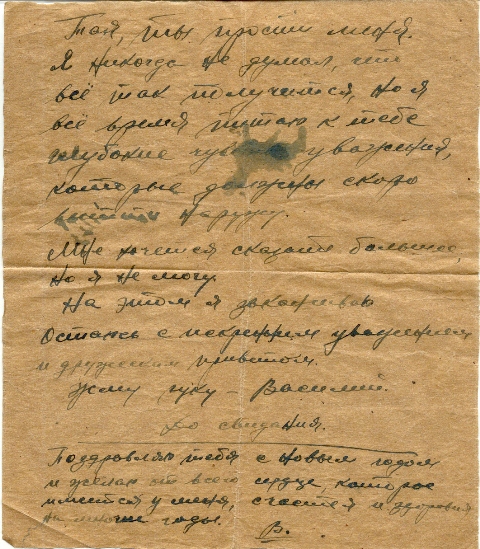 Тая, ты прости меня.
Я никогда не думал, что
всё так получится, но я
всё время питаю к тебе
глубокие чув уважения,
которые должны скоро
выйти наружу.
Мне хочется сказать больше,
но я не могу.
На этом я заканчиваю
Остаюсь с искренним уважением
и дружеским приветом.
Жму руку – Василий.
До свидания.
Поздравляю тебя с новым годом
и желаю от всего сердца, которое
имеется у меня, счастья и здоровья
на многие годы.
В.